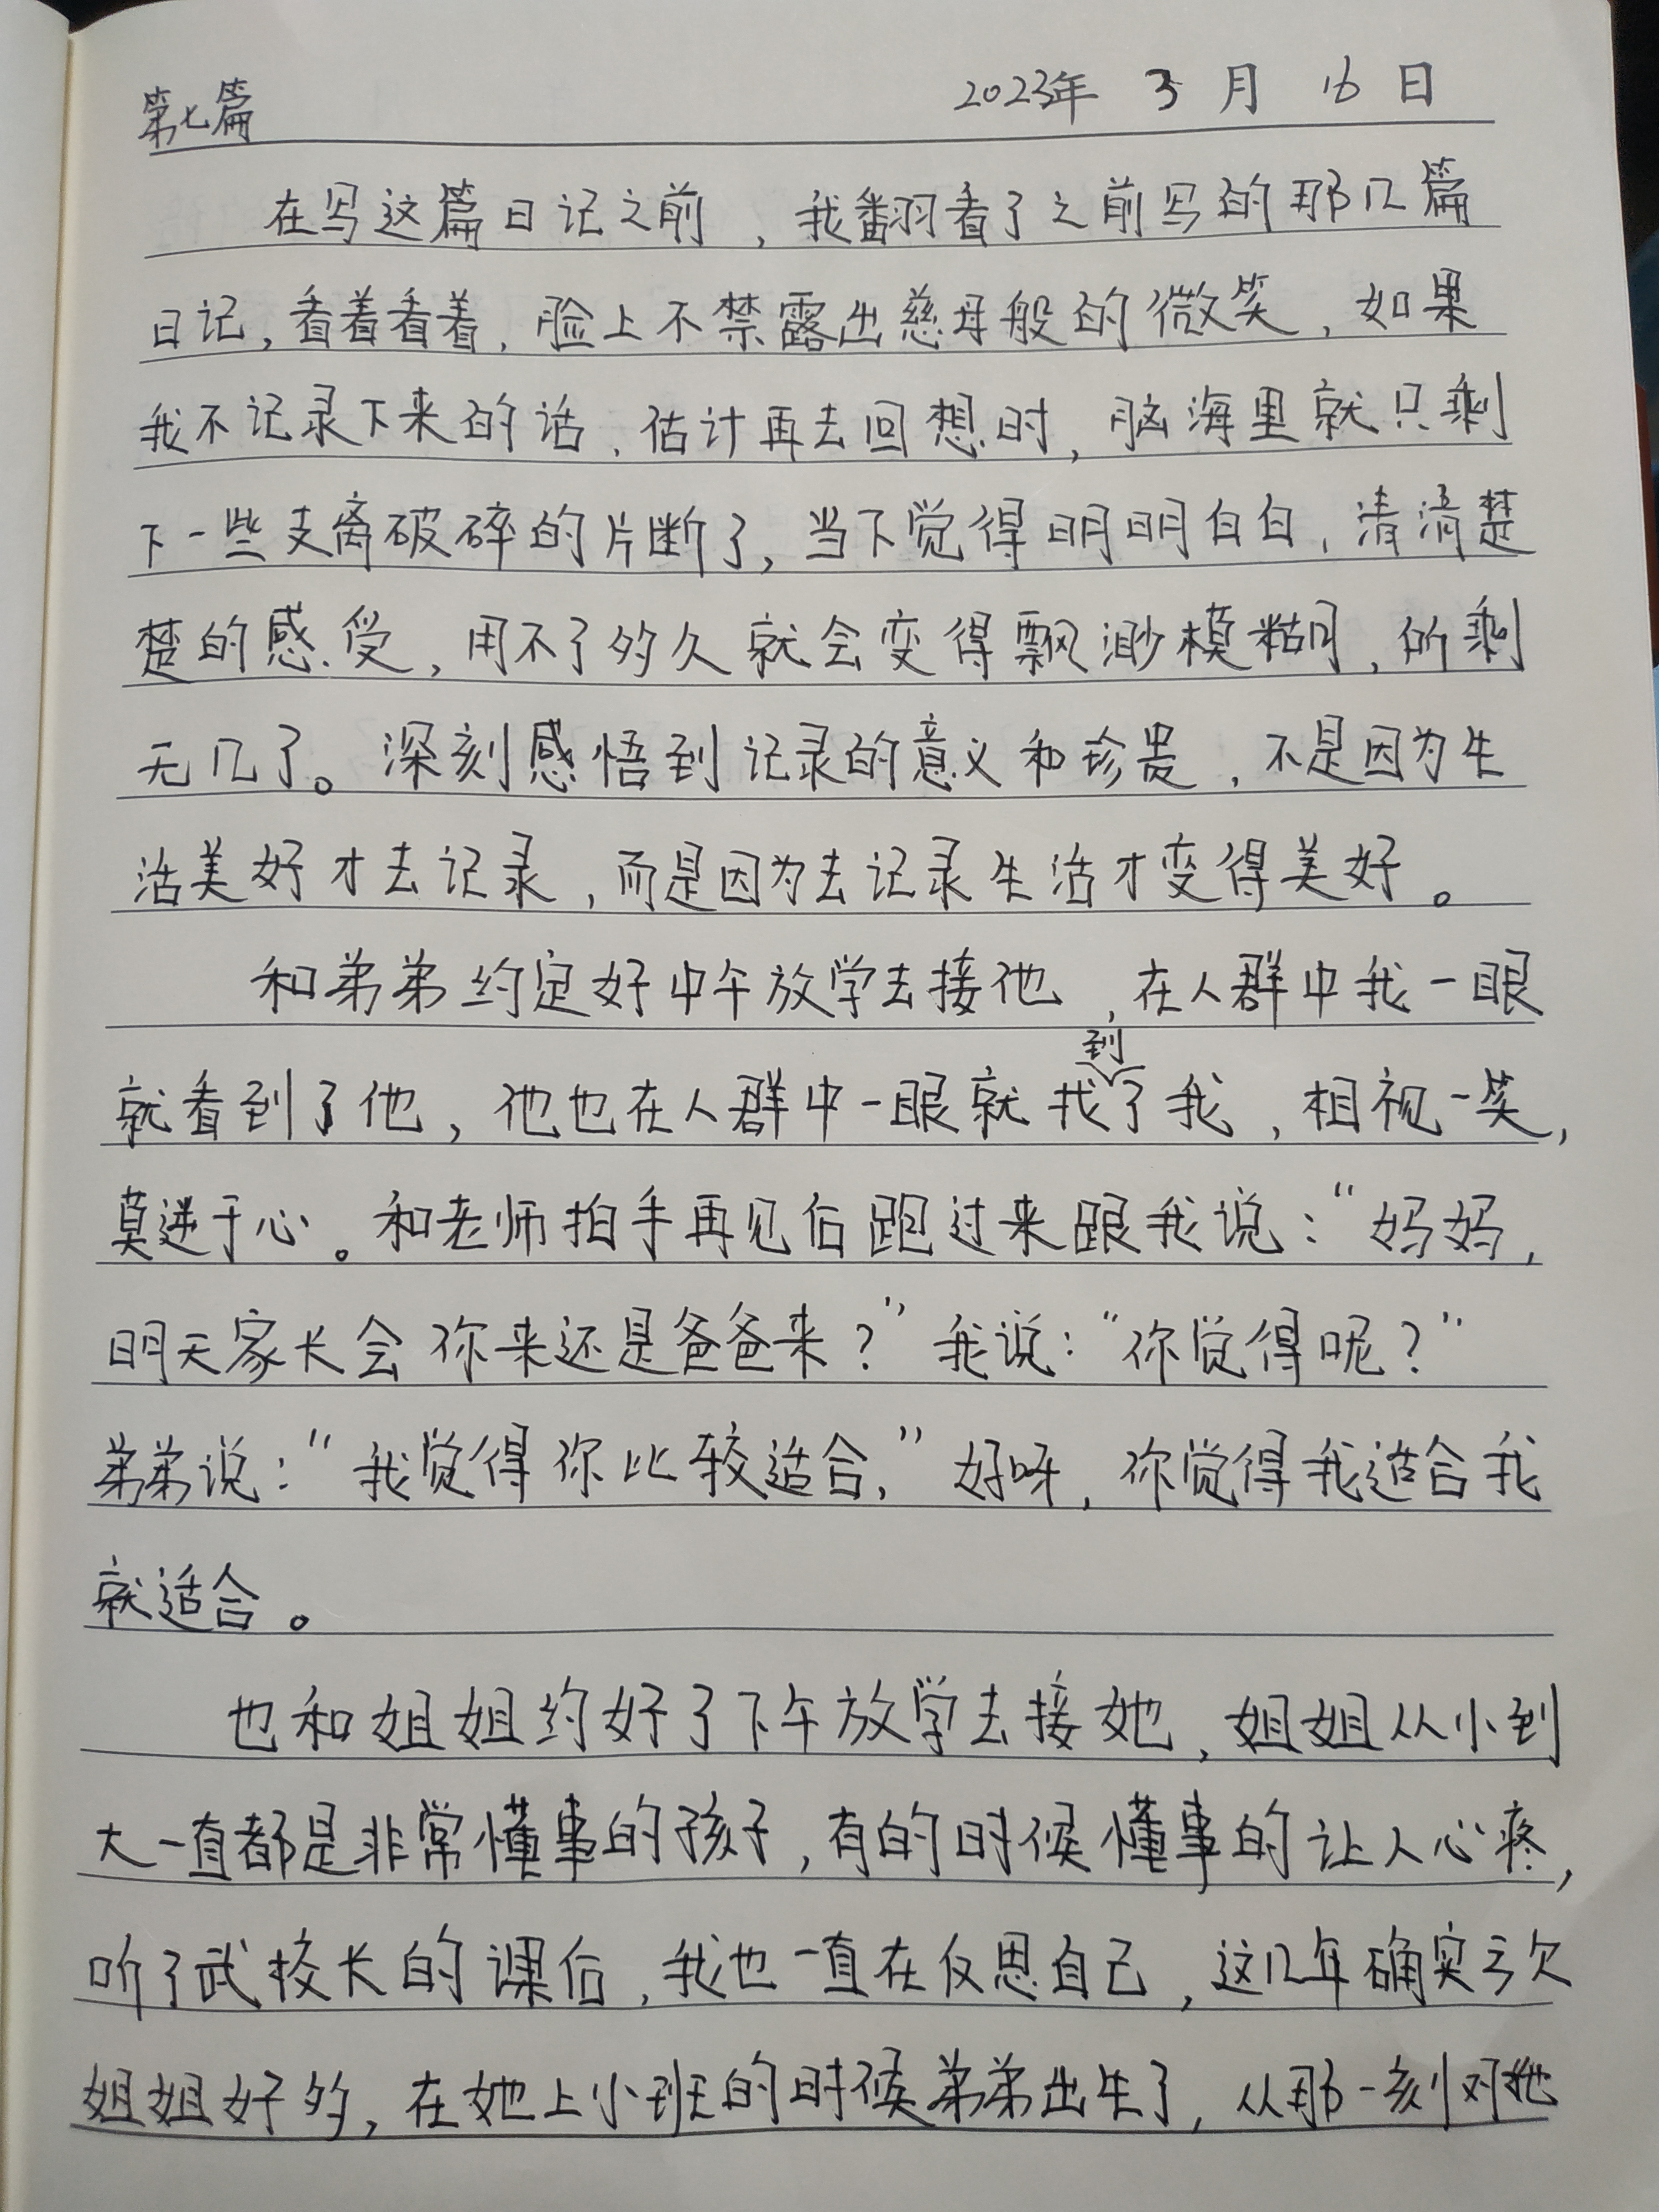 第七篇 2023年 3 月 16 日
在写这篇日记之前，我翻看了之前写的那几篇
日记，看着看着，脸上不禁露出慈母般的微笑，如果
我不记录下来的话，估计再去回想时，脑海里就只剩
下一些支离破碎的片断了，当下觉得明明白白，清清楚
楚的感受，用不了多久就会变得飘渺模糊，所剩
无几了。深刻感悟到记录的意义和珍贵，不是因为生
活美好才去记录，而是因为去记录生活才变得美好。
和弟弟约定好中午放学去接他，在人群中我一眼
就看到了他，他也在人群中一眼就找到了我，相视一笑，
莫逆于心。和老师拍手再见后跑过来跟我说：“妈妈，
明天家长会你来还是爸爸来？”我说：“你觉得呢？”
弟弟说：“我觉得你比较适合，”好呀，你觉得我适合我
就适合。
也和姐姐约好了下午放学去接她，姐姐从小到
大一直都是非常懂事的孩子，有的时候懂事的让人心疼，
听了武校长的课后，我也一直在反思自己，这几年确实亏欠
姐姐好多，在她上小班的时候弟弟出生了，从那一刻对她